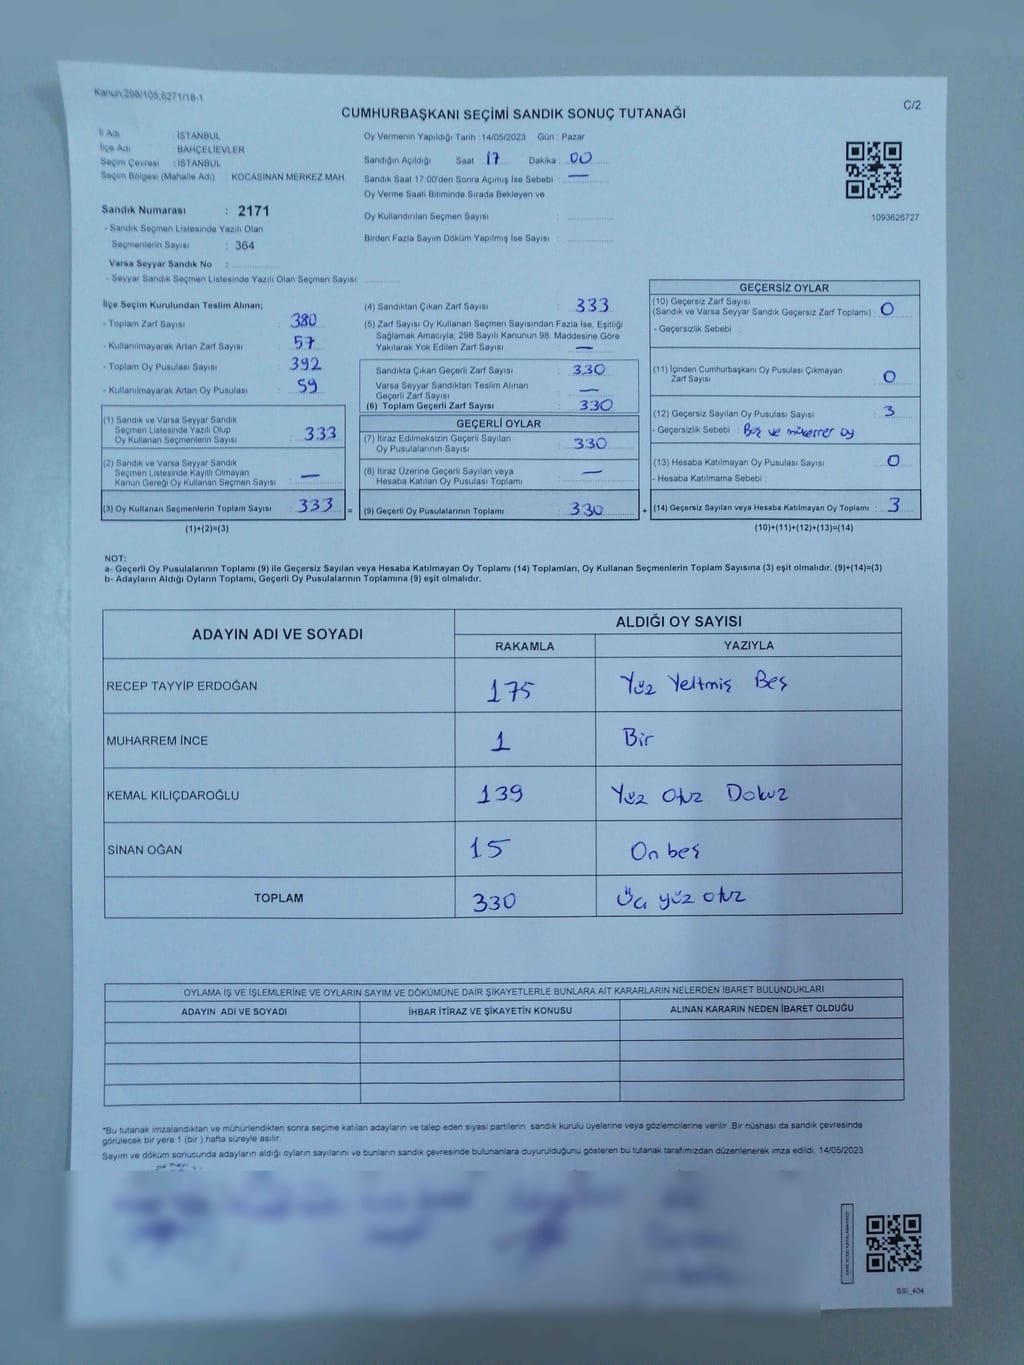 Kanun.298/105,6271/18-1
C/2
CUMHURBAŞKANI SEÇİMİ SANDIK SONUÇ TUTANAĞI
İl Adı : İSTANBUL
İlçe Adı : BAHÇELİEVLER
Seçim Çevresi : İSTANBUL
Seçim Bölgesi (Mahalle Adı) : KOCASİNAN MERKEZ MAH.
Sandık Numarası : 2171
- Sandık Seçmen Listesinde Yazılı Olan
Seçmenlerin Sayısı : 364
Varsa Seyyar Sandık No :
- Seyyar Sandık Seçmen Listesinde Yazılı Olan Seçmen Sayısı:
Oy Vermenin Yapıldığı Tarih : 14/05/2023 Gün : Pazar
Sandığın Açıldığı Saat : 17 Dakika : 00
Sandık Saat 17:00'den Sonra Açımış İse Sebebi : —
Oy Verme Saati Bitiminde Sırada Bekleyen ve
Oy Kullandırılan Seçmen Sayısı :
Birden Fazla Sayım Döküm Yapılmış İse Sayısı :
1093626727
İlçe Seçim Kurulundan Teslim Alınan;
- Toplam Zarf Sayısı : 380
- Kullanılmayarak Artan Zarf Sayısı : 57
- Toplam Oy Pusulası Sayısı : 392
- Kullanılmayarak Artan Oy Pusulası : 59
(1) Sandık ve Varsa Seyyar Sandık
Seçmen Listesinde Yazılı Olup
Oy Kullanan Seçmenlerin Sayısı : 333
(2) Sandık ve Varsa Seyyar Sandık
Seçmen Listesinde Kayıtlı Olmayan
Kanun Gereği Oy Kullanan Seçmen Sayısı : —
(3) Oy Kullanan Seçmenlerin Toplam Sayısı : 333 =
(1)+(2)=(3)
(4) Sandıktan Çıkan Zarf Sayısı : 333
(5) Zarf Sayısı Oy Kullanan Seçmen Sayısından Fazla İse, Eşitliği
Sağlamak Amacıyla, 298 Sayılı Kanunun 98. Maddesine Göre
Yakılarak Yok Edilen Zarf Sayısı : —
Sandıkta Çıkan Geçerli Zarf Sayısı : 330
Varsa Seyyar Sandıktan Teslim Alınan
Geçerli Zarf Sayısı : —
(6) Toplam Geçerli Zarf Sayısı : 330
GEÇERLİ OYLAR
(7) İtiraz Edilmeksizin Geçerli Sayılan
Oy Pusulalarının Sayısı : 330
(8) İtiraz Üzerine Geçerli Sayılan veya
Hesaba Katılan Oy Pusulası Toplamı : —
(9) Geçerli Oy Pusulalarının Toplamı : 330 +
GEÇERSİZ OYLAR
(10) Geçersiz Zarf Sayısı
(Sandık ve Varsa Seyyar Sandık Geçersiz Zarf Toplamı) : 0
- Geçersizlik Sebebi :
(11) İçinden Cumhurbaşkanı Oy Pusulası Çıkmayan
Zarf Sayısı : 0
(12) Geçersiz Sayılan Oy Pusulası Sayısı : 3
- Geçersizlik Sebebi : Boş ve mükerrer oy
(13) Hesaba Katılmayan Oy Pusulası Sayısı : 0
- Hesaba Katılmama Sebebi :
(14) Geçersiz Sayılan veya Hesaba Katılmayan Oy Toplamı : 3
(10)+(11)+(12)+(13)=(14)
NOT:
a- Geçerli Oy Pusulalarının Toplamı (9) ile Geçersiz Sayılan veya Hesaba Katılmayan Oy Toplamı (14) Toplamları, Oy Kullanan Seçmenlerin Toplam Sayısına (3) eşit olmalıdır. (9)+(14)=(3)
b- Adayların Aldığı Oyların Toplamı, Geçerli Oy Pusulalarının Toplamına (9) eşit olmalıdır.
ADAYIN ADI VE SOYADI
ALDIĞI OY SAYISI
RAKAMLA YAZIYLA
RECEP TAYYİP ERDOĞAN 175 Yüz Yeltmiş Beş
MUHARREM İNCE 1 Bir
KEMAL KILIÇDAROĞLU 139 Yüz Otuz Dokuz
SİNAN OĞAN 15 On beş
TOPLAM 330 Üç yüz otuz
OYLAMA İŞ VE İŞLEMLERİNE VE OYLARIN SAYIM VE DÖKÜMÜNE DAİR ŞİKAYETLERLE BUNLARA AİT KARARLARIN NELERDEN İBARET BULUNDUKLARI
ADAYIN ADI VE SOYADI İHBAR İTİRAZ VE ŞİKAYETİN KONUSU ALINAN KARARIN NEDEN İBARET OLDUĞU
*Bu tutanak imzalandıktan ve mühürlendikten sonra seçime katılan adayların ve talep eden siyasi partilerin sandık kurulu üyelerine veya gözlemcilerine verilir. Bir nüshası da sandık çevresinde
görülecek bir yere 1 (bir ) hafta süreyle asılır.
Sayım ve döküm sonucunda adayların aldığı oyların sayılarını ve bunların sandık çevresinde bulunanlara duyurulduğunu gösteren bu tutanak tarafımızdan düzenlenerek imza edildi. 14/05/2023
SSI_404